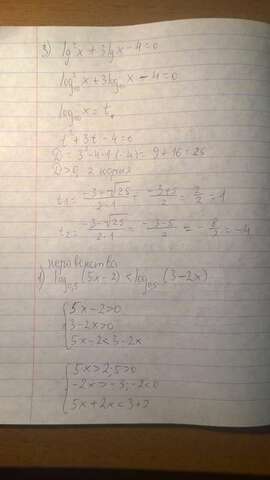 3) lg²x + 3lgx - 4 = 0
log²₁₀x + 3log₁₀x - 4 = 0
log₁₀x = t,
t² + 3t - 4 = 0
D = 3² - 4·1·(-4) = 9 + 16 = 25
D > 0, 2 корня
t₁ = (-3+√25)/(2·1) = (-3+5)/2 = 2/2 = 1
t₂ = (-3-√25)/(2·1) = (-3-5)/2 = -8/2 = -4
неравенства
1) log₀,₅(5x-2) < log₀,₅(3-2x)
5x-2>0
3-2x>0
5x-2<3-2x
5x>2; 5>0
-2x>-3; -2<0
5x+2x<3+2